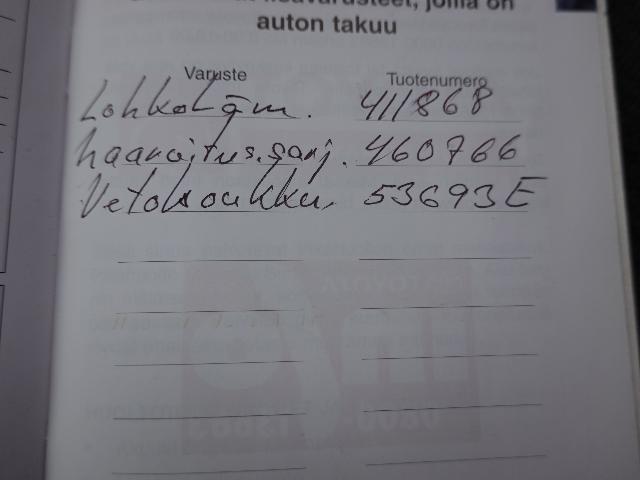 lisävarusteet, joilla on
auton takuu
Varuste Tuotenumero
Lohkoläm. 411868
haaroitus.sarj. 460766
Vetokoukku 53693E